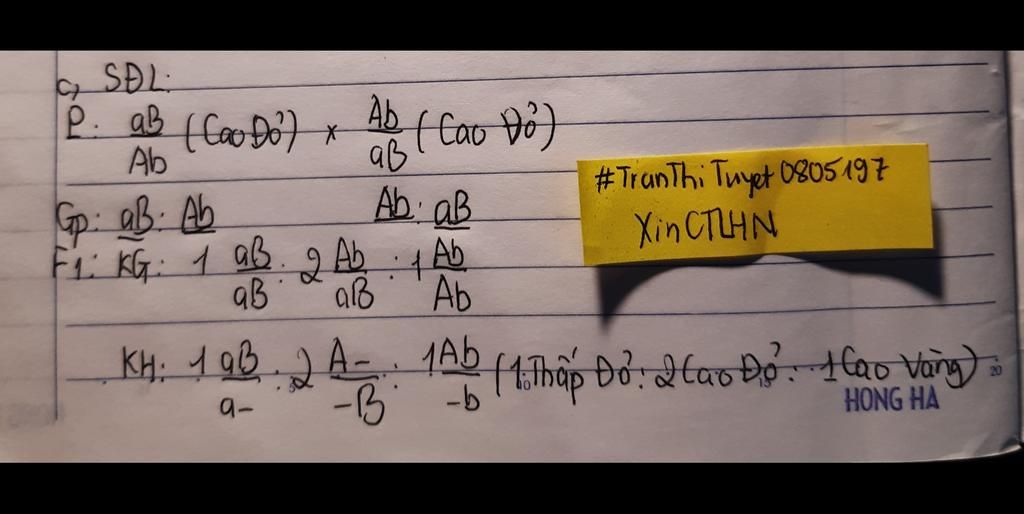 c, SĐL:
P: aB/Ab (Cao Đỏ) x Ab/aB (Cao Đỏ)
Gp: aB : Ab Ab : aB
F1: KG: 1 aB/aB : 2 Ab/aB : 1 Ab/Ab
KH: 1 aB/a- : 2 A-/-B : 1 Ab/-b (1 Thấp Đỏ : 2 Cao Đỏ : 1 Cao Vàng)
#TranThiTuyet0805197
XinCTLHN
5 10 15 20
HONG HA